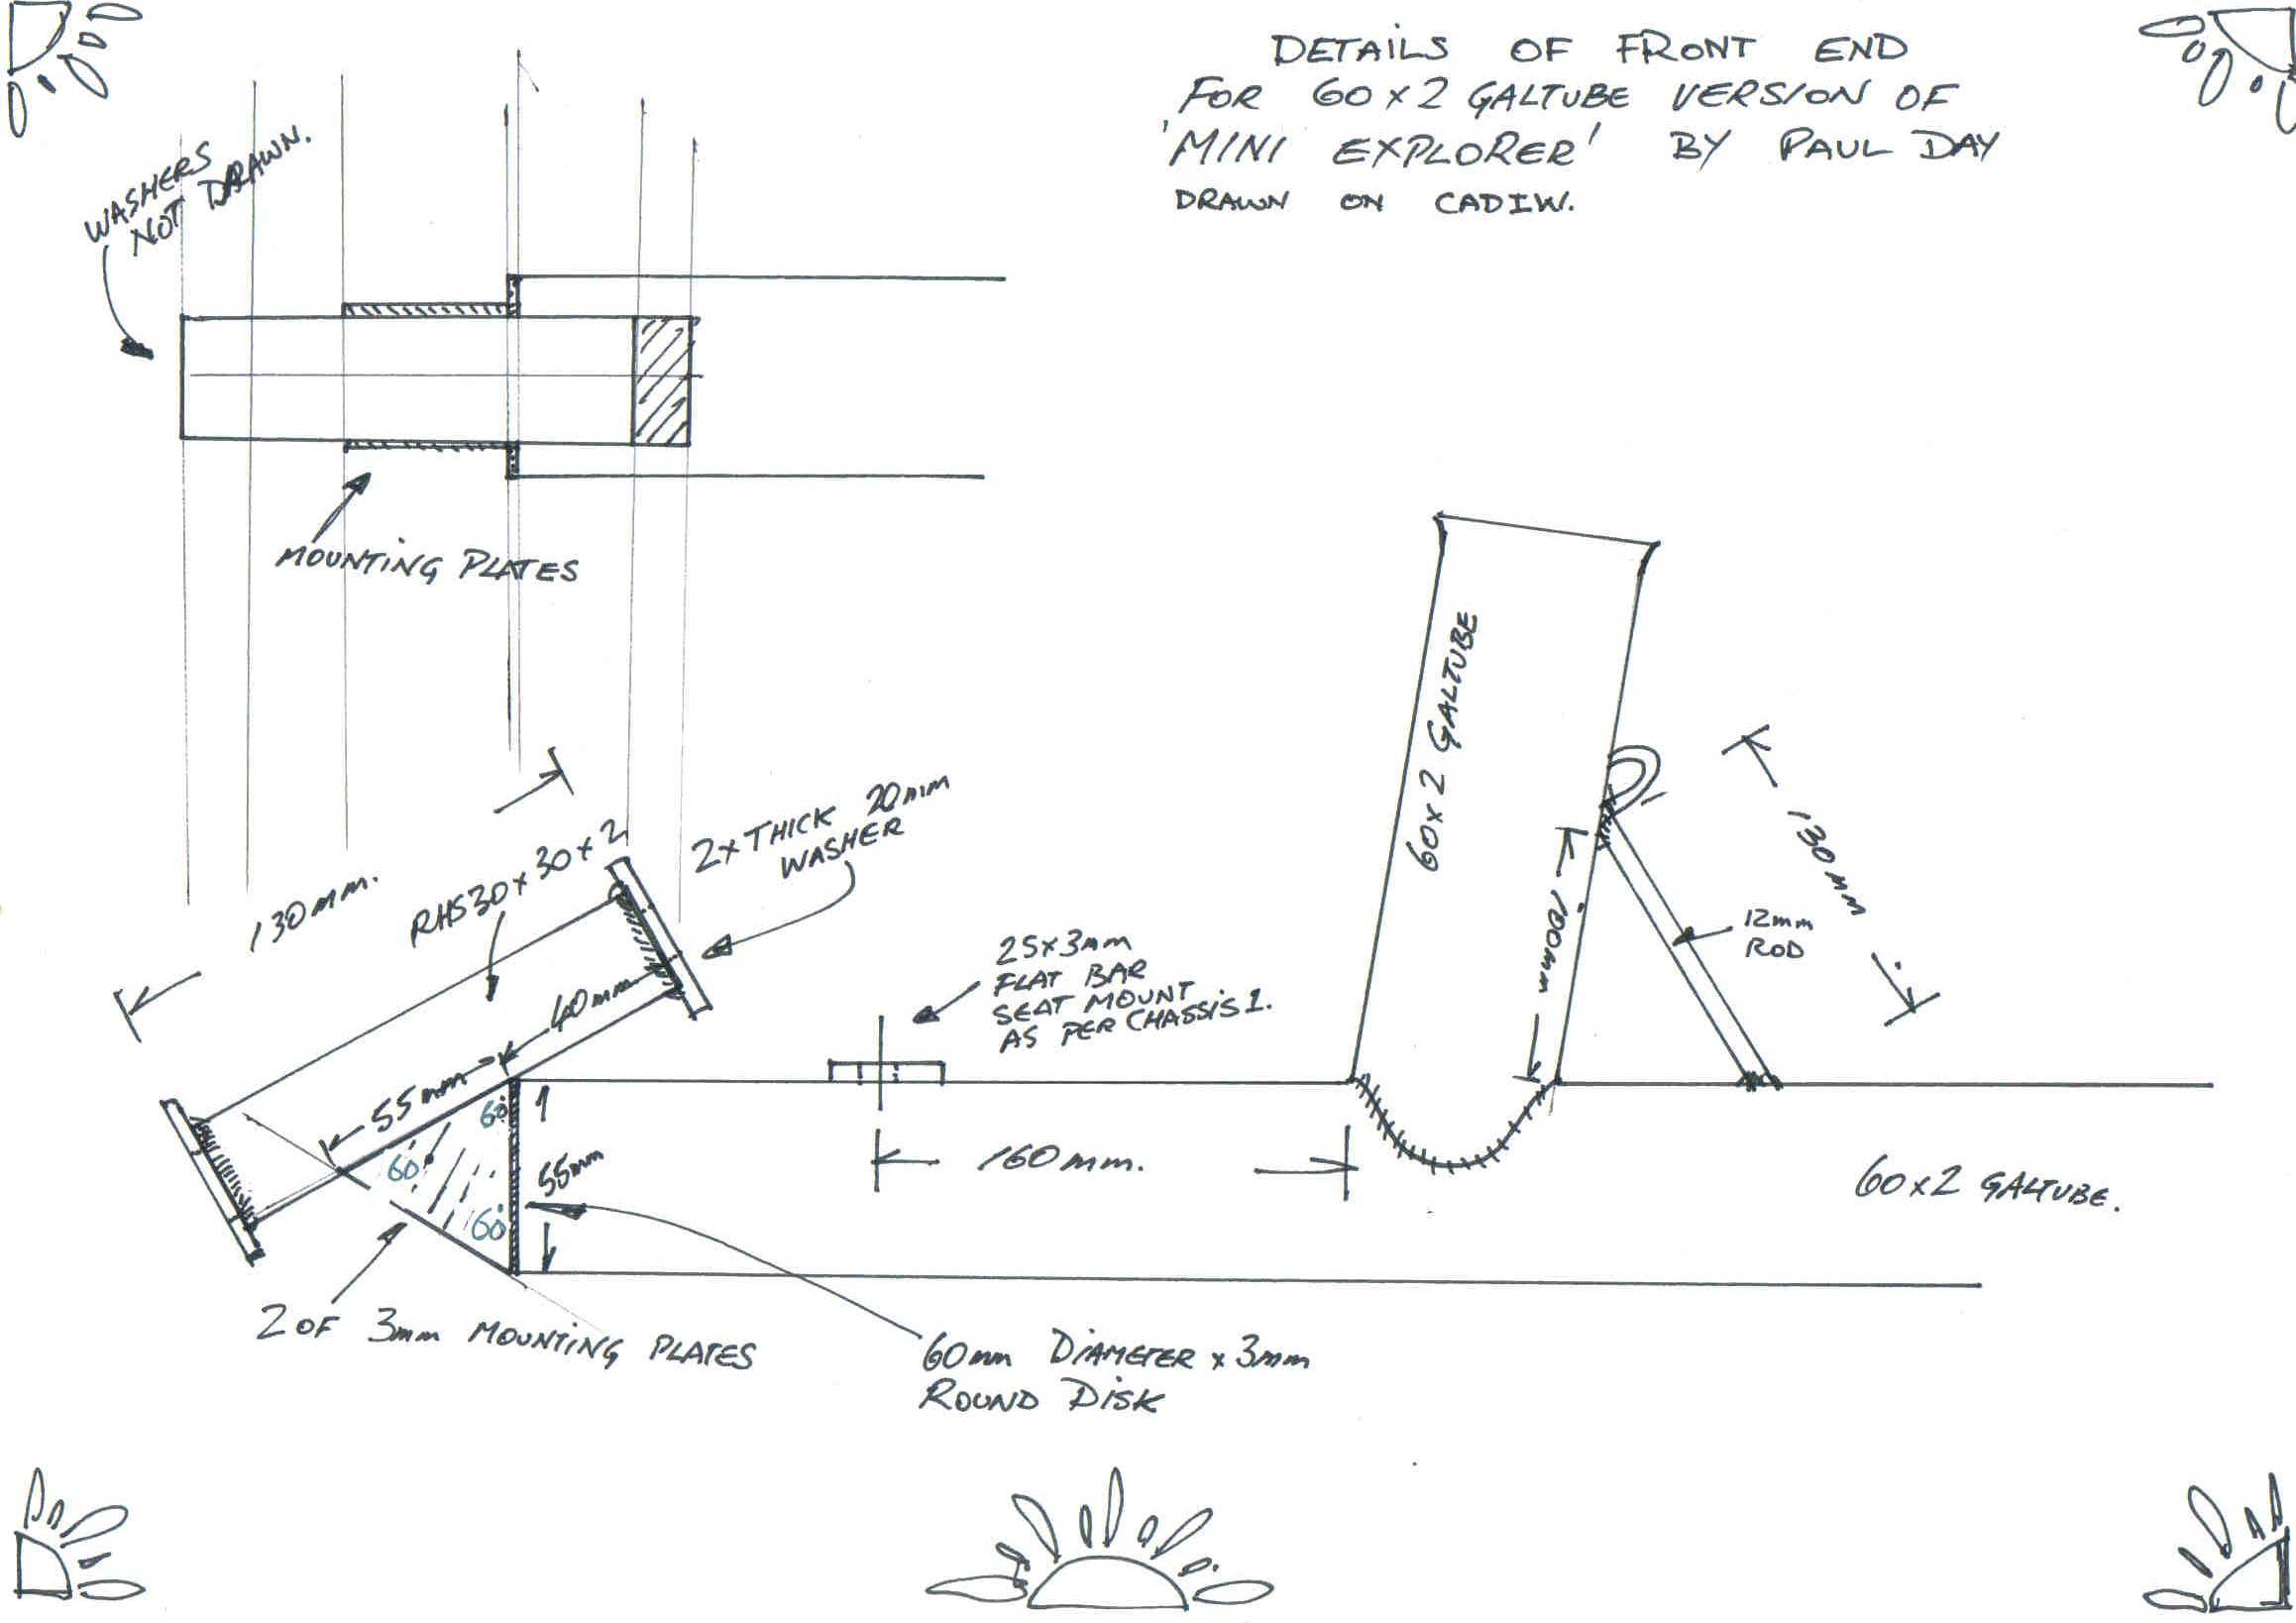 DETAILS OF FRONT END
FOR 60x2 GALTUBE VERSION OF
'MINI EXPLORER' BY PAUL DAY
DRAWN ON CADIW.
WASHERS
NOT DRAWN.
MOUNTING PLATES
130mm.
RHS 30x30x2
2x THICK 20mm
WASHER
40mm
55mm
60°
60°
60°
55mm
2 OF 3mm MOUNTING PLATES
60mm DIAMETER x 3mm
ROUND DISK
25x3mm
FLAT BAR
SEAT MOUNT
AS PER CHASSIS 1.
160mm.
60x2 GALTUBE
100mm
130mm
12mm
ROD
60x2 GALTUBE.